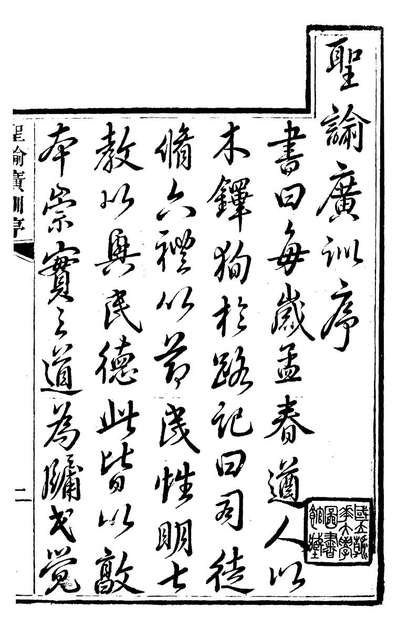 聖諭廣訓序
書曰每歲孟春遒人以
木鐸狥於路記曰司徒
脩六禮以節民性明七
教以興民德此皆以敦
本崇實之道為牖民覺
聖諭廣訓序
二